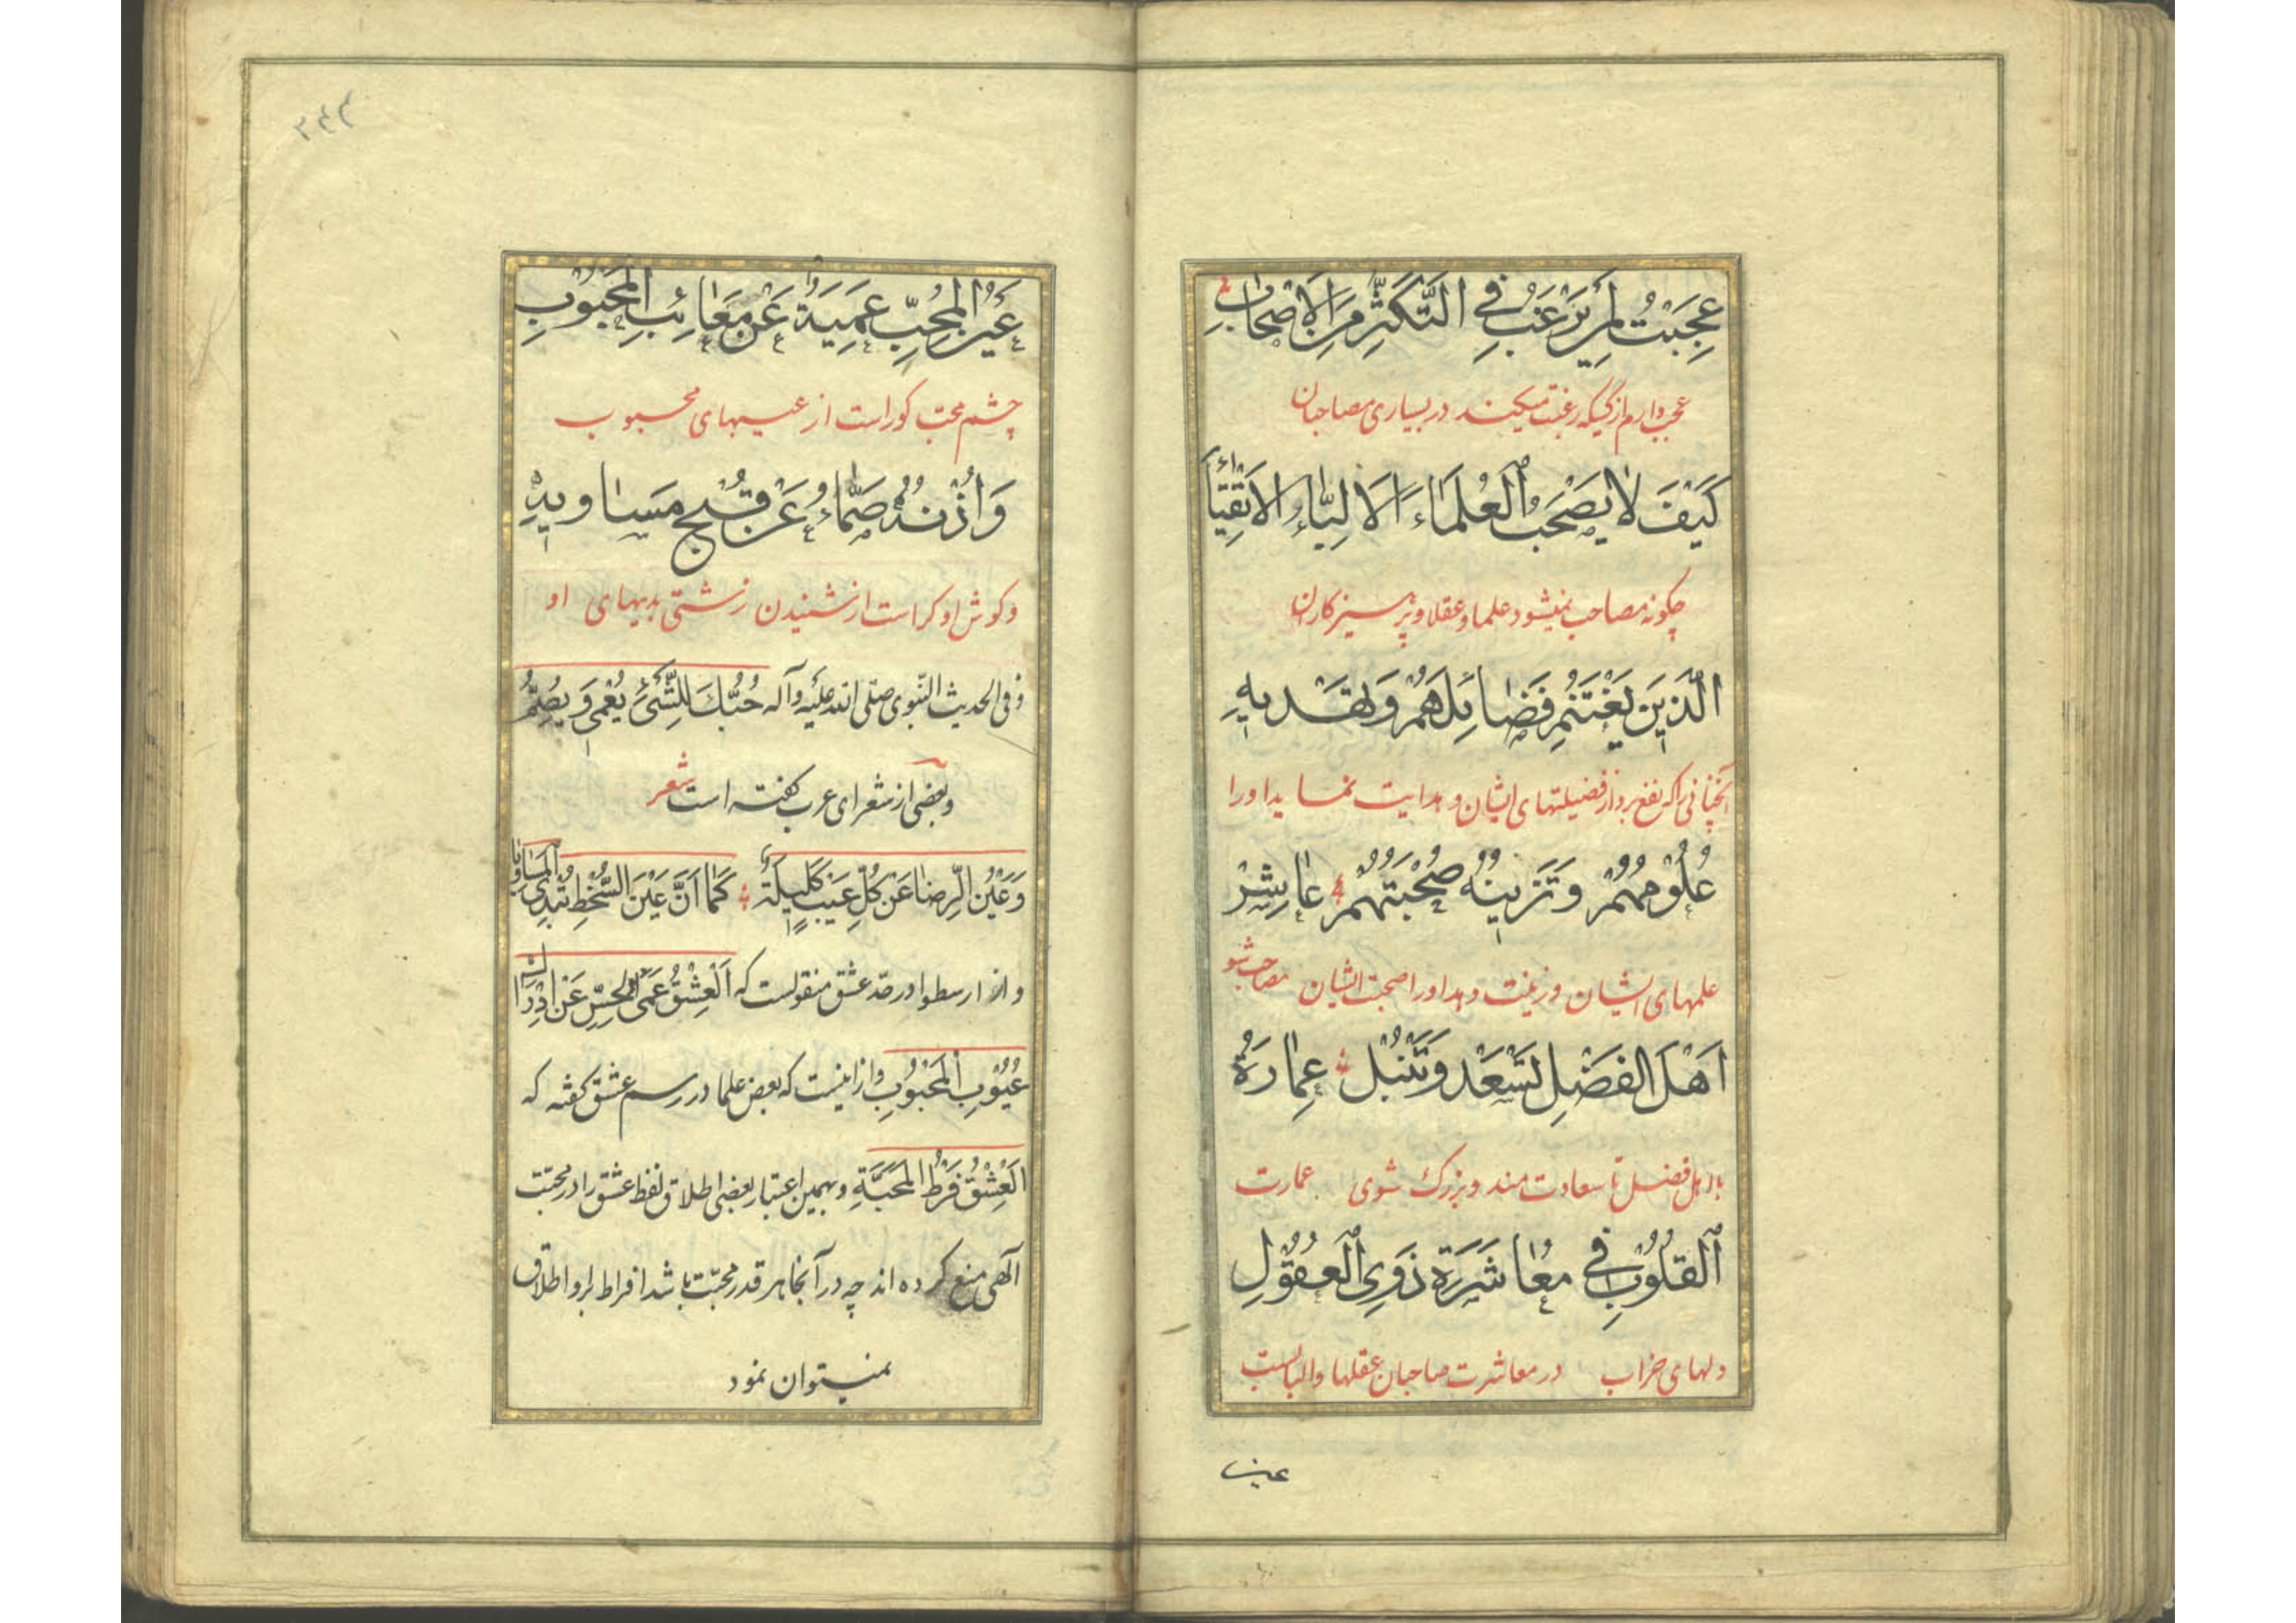 عَجِبْتُ لِمَنْ يَرْغَبُ فِي التَّكَثُّرِ مِنَ الْاَصْحَابِ
عجب دارم از کسیکه رغبت میکند در بسیاری مصاحبان
كَيْفَ لَا يَصْحَبُ الْعُلَمَاءَ الْاَلِبَّاءَ وَ الْاَتْقِيَاءَ
چکونه مصاحب نمیشود علما و عقلا و پرهیزکاران
الَّذِينَ يَغْتَنِمُ فَضَائِلَهُمْ وَ تَهْدِيهِ
آنچنانی را که نفع برد از فضیلتهای ایشان و هدایت نماید او را
عُلُومُهُمْ وَ تَزِينُهُ صُحْبَتُهُمْ عَاشِرْ
علمهای ایشان و زینت دهد او را صحبت ایشان مصاحب شو
اَهْلَ الْفَضْلِ تَسْعَدْ وَ تَنْبُلْ عِمَارَةُ
با اهل فضل تا سعادت مند و بزرک شوی عمارت
الْقُلُوبِ فِي مُعَاشَرَةِ ذَوِي الْعُقُولِ
دلهای خراب در معاشرت صاحبان عقلها و البابست
عین
۳۴۲
عَيْنُ الْمُحِبِّ عَمِيَةٌ عَنْ مَعَائِبِ الْمَحْبُوبِ
چشم محب کور است از عیبهای محبوب
وَ اُذُنُهُ صَمَّاءُ عَنْ قُبْحِ مَسَاوِيهِ
و کوش او کر است از شنیدن زشتی بدیهای او
و فی الحدیث النّبوی صلی الله علیه و آله حُبُّكَ لِلشَّيْءِ يُعْمِي وَ يُصِمُّ
و بعضی از شعرای عرب کفته است شعر
وَ عَيْنُ الرِّضَا عَنْ كُلِّ عَيْبٍ كَلِيلَةٌ كَمَا اَنَّ عَيْنَ السُّخْطِ تُبْدِي الْمَسَاوِيَا
و از ارسطو در حدّ عشق منقولست که اَلْعِشْقُ عَمَى الْحِسِّ عَنْ اِدْرَاكِ
عُيُوبِ الْمَحْبُوبِ و ازاینست که بعض علما در رسم عشق کفته که
اَلْعِشْقُ فَرْطُ الْمَحَبَّةِ و بهمین اعتبار بعضی اطلاق لفظ عشق را در محبت
آلهی منع کرده اند چه در آنجا هر قدر محبّت باشد افراط برو اطلاق
نمیتوان نمود